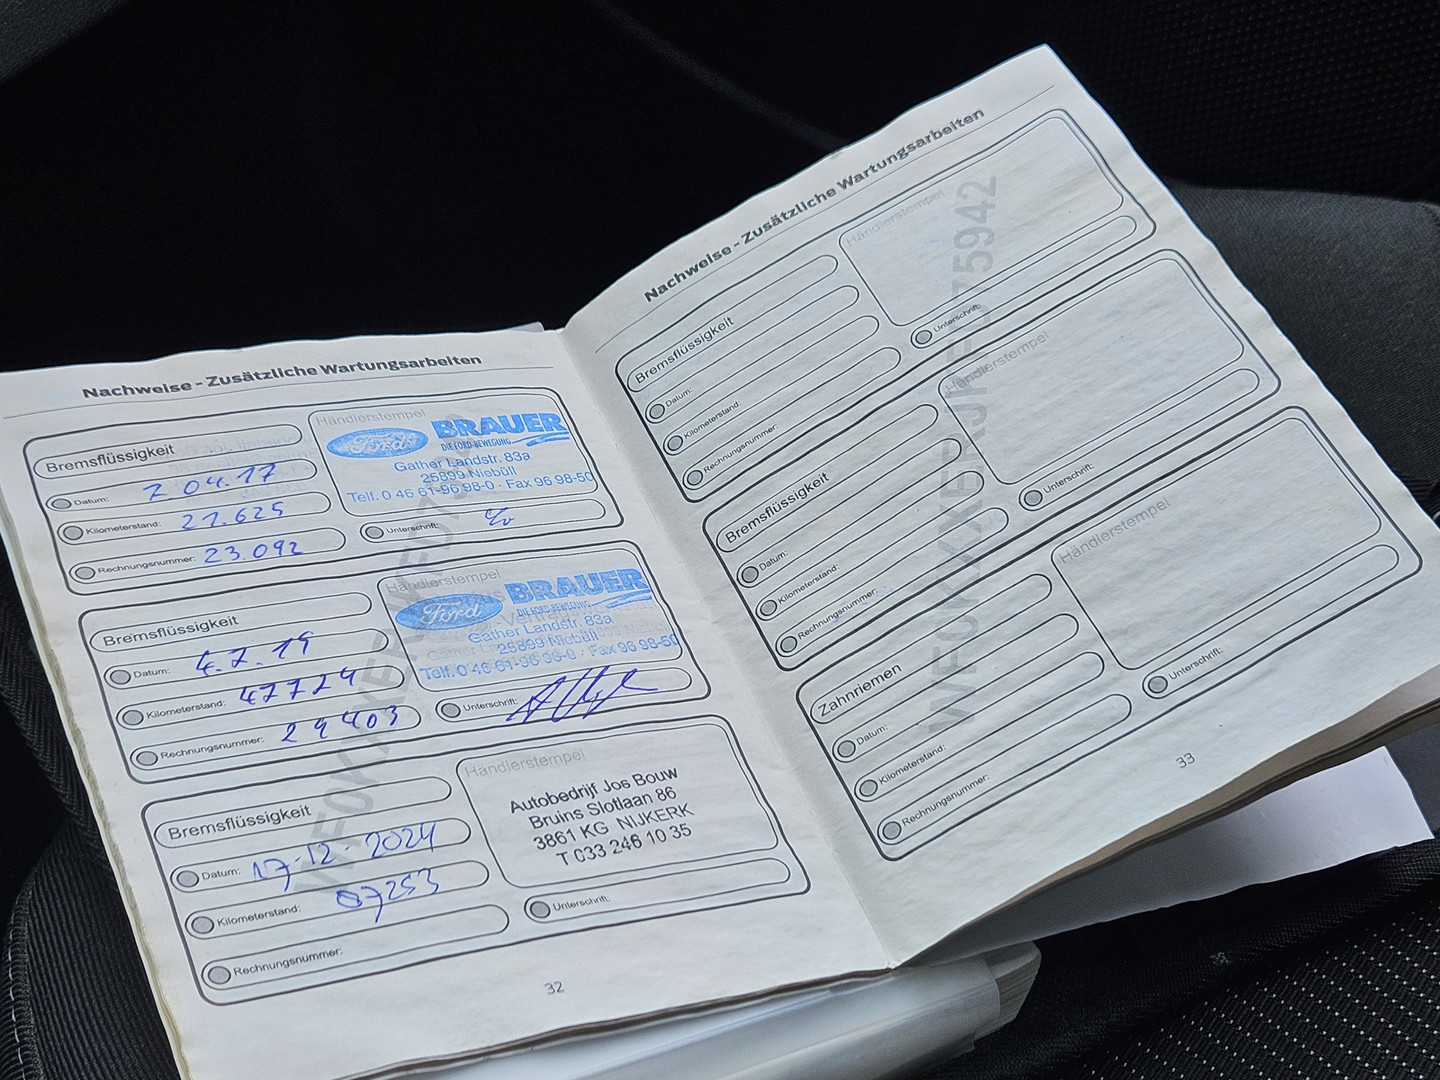 Nachweise - Zusätzliche Wartungsarbeiten
Bremsflüssigkeit
Datum: 2 04.17
Kilometerstand: 21.625
Rechnungsnummer: 23.092
Händlerstempel
Ford BRAUER
DIE FORD-BEWEGUNG
Gather Landstr. 83a
25899 Niebüll
Telf. 0 46 61-96 98-0 · Fax 96 98-50
Unterschrift:
Bremsflüssigkeit
Datum: 4.7.19
Kilometerstand: 47724
Rechnungsnummer: 29403
Händlerstempel
Ford BRAUER
DIE FORD-BEWEGUNG
Gather Landstr. 83a
25899 Niebüll
Telf. 0 46 61-96 98-0 · Fax 96 98-50
Unterschrift:
Bremsflüssigkeit
Datum: 17-12-2024
Kilometerstand: 87253
Rechnungsnummer:
Händlerstempel
Autobedrijf Jos Bouw
Bruins Slotlaan 86
3861 KG NIJKERK
T 033 246 10 35
Unterschrift:
32
Nachweise - Zusätzliche Wartungsarbeiten
Bremsflüssigkeit
Datum:
Kilometerstand:
Rechnungsnummer:
Händlerstempel
Unterschrift:
Bremsflüssigkeit
Datum:
Kilometerstand:
Rechnungsnummer:
Händlerstempel
Unterschrift:
Zahnriemen
Datum:
Kilometerstand:
Rechnungsnummer:
Händlerstempel
Unterschrift:
33